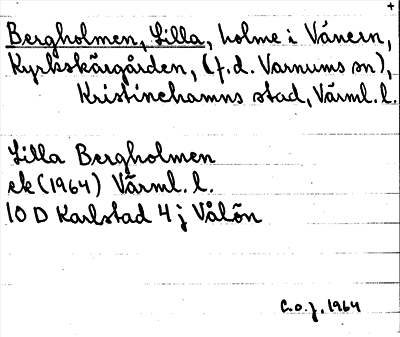 Bergholmen, Lilla, holme i Vänern,
Kyrkskärgården, (f.d. Varnums sn),
Kristinehamns stad, Värml. l.
Lilla Bergholmen
ek (1964) Värml. l.
10 D Karlstad 4 j Vålön
C.o.j. 1964